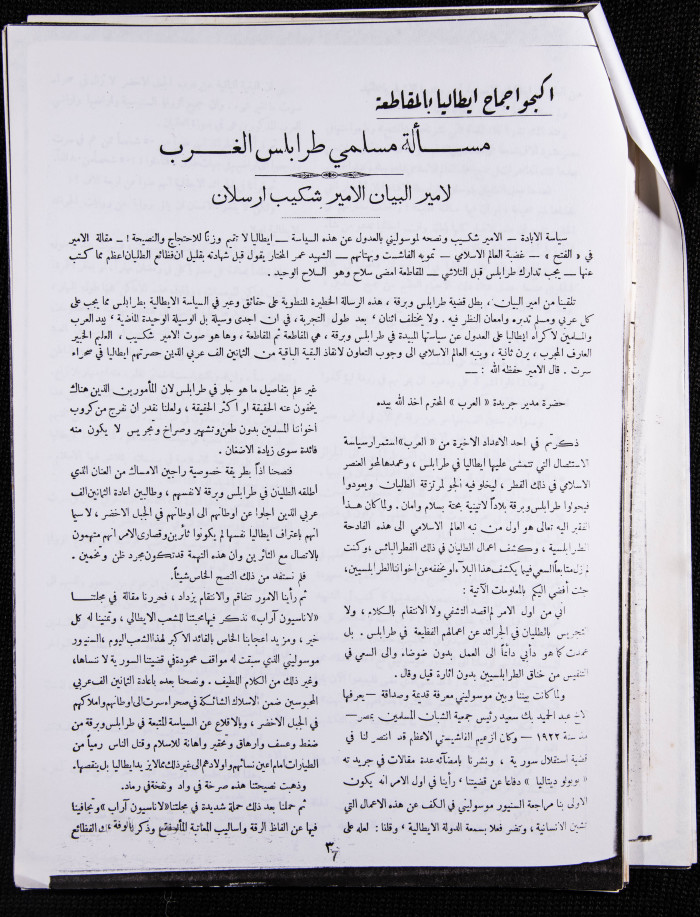 اكبحوا جماح ايطاليا بالمقاطعة
مسألة مسلمي طرابلس الغرب
لامير البيان الامير شكيب ارسلان
سياسة الابادة — الامير شكيب ونصحه لموسوليني بالعدول عن هذه السياسة — ايطاليا لا تقيم وزناً للاحتجاج والنصيحة! — مقالة الامير
في « الفتح » — غضبة العالم الاسلامي — تمويه الفاشست وبهتانهم — الشهيد عمر المختار يقول قبل شهادته بقليل ان فظائع الطليان اعظم مما كتب
عنها — يجب تدارك طرابلس قبل التلاشي — المقاطعة امضى سلاح وهو السلاح الوحيد .
تلقينا من امير البيان ، بطل قضية طرابلس وبرقة ، هذه الرسالة الخطيرة المنطوية على حقائق وعبر في السياسة الايطالية بطرابلس مما يجب على
كل عربي ومسلم تدبره وامعان النظر فيه . ولا يختلف اثنان ' بعد طول التجربة ، في ان اجدى وسيلة بل الوسيلة الوحيدة الماضية ' بيد العرب
والمسلمين لاكراه ايطاليا على العدول عن سياستها المبيدة في طرابلس وبرقة ، هي المقاطعة ثم المقاطعة ، وها هو صوت الامير شكيب ، العليم الخبير
العارف المجرب ، يرن ثانية ، وينبه العالم الاسلامي الى وجوب التعاون لانقاذ البقية الباقية من الثمانين الف عربي الذين حصرتهم ايطاليا في صحراء
سرت . قال الامير حفظه الله : —
حضرة مدير جريدة « العرب » المحترم اخذ الله بيده
ذكرتم في احد الاعداد الاخيرة من « العرب » استمرار سياسة
الاستئصال التي تتمشى عليها ايطاليا في طرابلس ، وعمدها لمحو العنصر
الاسلامي في ذلك القطر ، ليخلو فيه الجو لمرتزقة الطليان ويعودوا
فيحولوا طرابلس وبرقة بلاداً لاتينية بحتة بسلام وامان . ولما كان هذا
الفقير اليه تعالى هو اول من نبه العالم الاسلامي الى هذه الفادحة
الطرابلسية ، وكشف اعمال الطليان في ذلك القطر البائس ، وكنت
لم ازل متابعاً السعي فيما يكشف هذا البلاء او يخففه عن اخواننا الطرابلسيين ،
جئت أفضي اليكم بالمعلومات الآتية :
اني من اول الامر لم اقصد التشفي ولا الانتقام بالكلام ، ولا
التجريس بالطليان في الجرائد عن اعمالهم الفظيعة في طرابلس . بل
عمدت كما هو دأبي دائماً الى العمل بدون ضوضاء والى السعي في
التنفيس من خناق الطرابلسيين بدون اثارة قيل وقال .
ولما كانت بيننا وبين موسوليني معرفة قديمة وصداقة — يعرفها
الاخ عبد الحميد بك سعيد رئيس جمعية الشبان المسلمين بمصر —
منذ سنة ١٩٢٢ — وكان الزعيم الفاشيستي الاعظم قد انتصر لنا في
قضية استقلال سورية ، ونشرنا بامضائه عدة مقالات في جريدته
« بوبولو ديتاليا » دفاعا عن قضيتنا ' رأينا في اول الامر انه يكون
الاولى بنا مراجعة السنيور موسوليني في الكف عن هذه الاعمال التي
تشين الانسانية ، وتضر فعلا بسمعة الدولة الايطالية ' وقلنا : لعله على
غير علم بتفاصيل ما هو جار في طرابلس لان المأمورين الذين هناك
يخفون عنه الحقيقة او اكثر الحقيقة ، ولعلنا نقدر ان نفرج من كروب
أخواننا المسلمين بدون طعن وتشهير وصراخ وتجريس لا يكون منه
فائدة سوى زيادة الاضغان .
فنصحنا اذاً بطريقة خصوصية راجين الامساك من العنان الذي
أطلقه الطليان في طرابلس وبرقة لانفسهم ، وطالبين اعادة الثمانين الف
عربي الذين اجلوا عن اوطانهم الى اوطانهم في الجبل الاخضر ، لا سيما
انهم باعتراف ايطاليا نفسها لم يكونوا ثائرين وقصارى الامر انهم متهمون
بالاتصال مع الثائرين وان هذه التهمة قد تكون مجرد ظن وتخمين .
فلم نستفد من ذلك النصح الخاص شيئاً.
ثم رأينا الامور تتفاقم والانتقام يزداد ، فحررنا مقالة في مجلتنا
« لاناسيون آراب » نذكر فيها محبتنا للشعب الايطالي ، وتمنينا له كل
خير ، ومزيد اعجابنا الخاص بالقائد الاكبر لهذا الشعب اليوم ، السنيور
موسوليني الذي سبقت له مواقف محمودة في قضيتنا السورية لا ننساها،
وغير ذلك من الكلام اللطيف . ونصحنا بعده باعادة الثمانين الف عربي
المحبوسين ضمن الاسلاك الشائكة في صحراء سرت الى اوطانهم واملاكهم
في الجبل الاخضر ، وبالاقلاع عن السياسة المتبعة في طرابلس وبرقة من
ضغط وعسف وارهاق وتحقير واهانة للاسلام وقتل الناس رمياً من
الطيارات امام اعين نسائهم واولادهم الى غير ذلك مما لا يزيد ايطاليا بل ينقصها.
وذهبت نصيحتنا هذه صرخة في واد ونفخة في رماد.
ثم حملنا بعد ذلك حملة شديدة في مجلتنا « لاناسيون آراب » وتجافينا
فيها عن الفاظ الرقة واساليب المعاتبة المألوفة وذكرنا الفظائع
٣